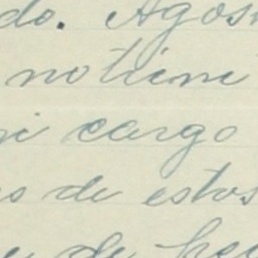 do. Agos
no tiene
mi cargo
os de estos
de